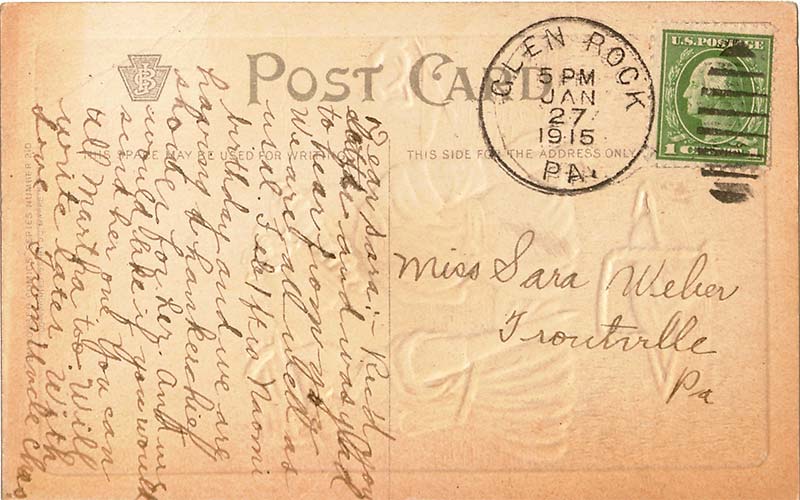 POST CARD
GLEN ROCK
5 PM
JAN
27
1915
PA.
U.S. POSTAGE
1 CENT 1
THIS SPACE MAY BE USED FOR WRITING
THIS SIDE FOR THE ADDRESS ONLY
SERIES NUMBER
Dear Sara:- Recd your
and was glad
to hear from you
We are all well as
usual. Feb 1st is Naomi
birthday and we are
having a hankerchief
shower for her. Aunt
would like if you would
send her one. You can
tell Martha too. Will
write later. With
Love From Uncle Chas
Miss Sara Weber
Troutville
Pa